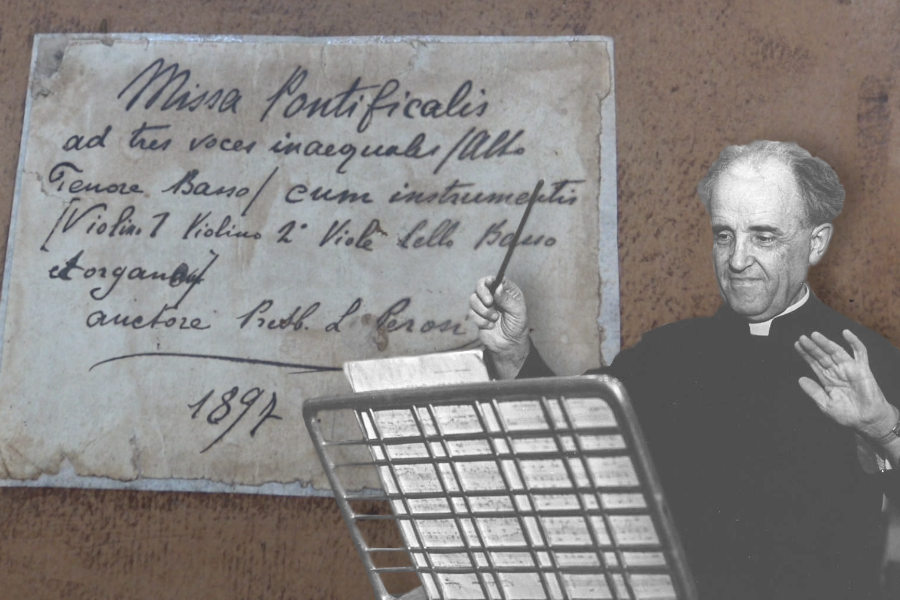 Missa Pontificalis
ad tres voces inaequales /Alto
Tenore Basso/ cum instrumentis
[Violino 1 Violino 2° Viole Cello Basso
et organo]
auctore Presb. L Perosi
1897